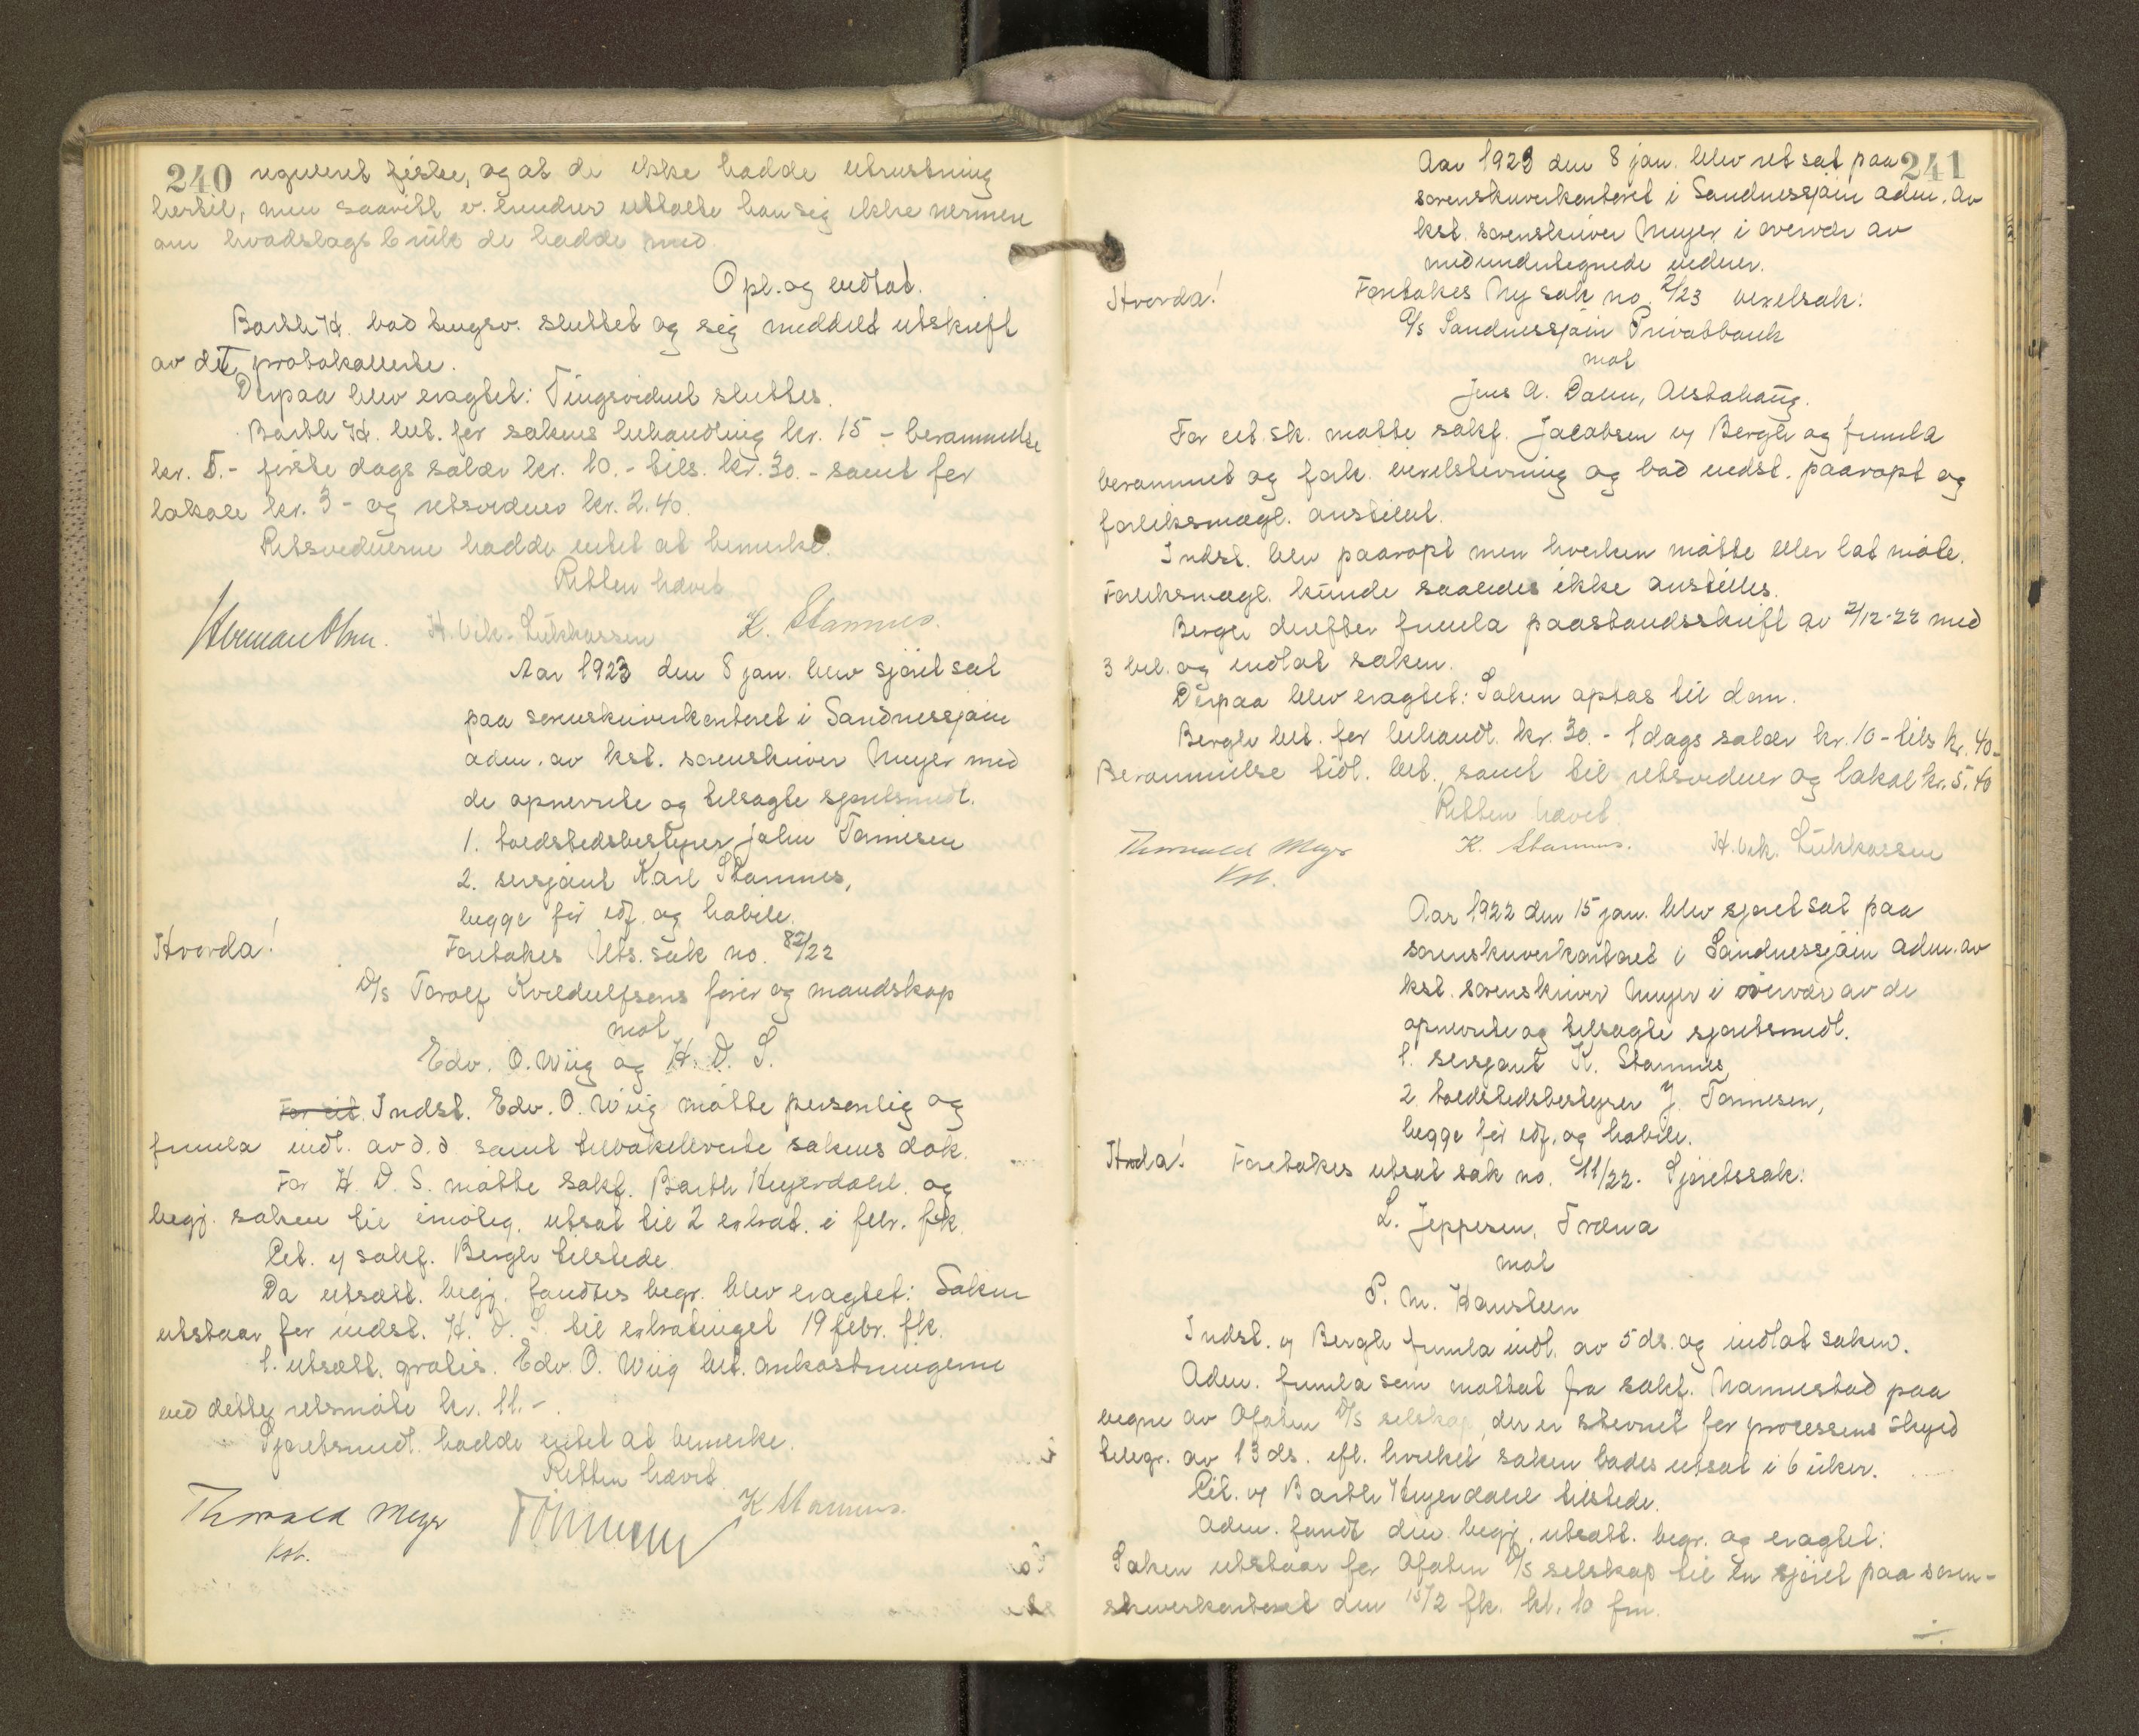 240
fiske, og at de ikke hadde utrustning
hertil, men saavidt v. husker uttalte han sig ikke nermere
om hvadslags bruk de hadde med.
Opl. og vedtat.
Barth H. bad tingsv. sluttet og sig meddelt utskrift
av det protokollerte.
Derpaa blev eragtet: Tingsvidnet sluttes.
Barth H. bet. for sakens behandling kr. 15 - berammelse
kr. 5.- første dags salær kr. 10.- tils. kr. 30.- samt for
lokale kr. 3 - og retsvidner kr. 2.40.
Retsvidnerne hadde intet at bemerke.
Retten hævet
Herman Olsen. H. Vik-Lukkassen K. Stamnes.
Aar 1923 den 8 jan. blev sjøret sat
paa sorenskriverkontoret i Sandnessjøen
adm. av kst. sorenskriver Meyer med
de opnevnte og tilsagte sjøretsmedl.
1. toldstedsbestyrer John Tønnesen
2. sersjant Karl Stamnes,
begge før edf. og habile.
Hvorda!
Foretokes Uts. sak no. 82/22
D/s Torolf Kveldulfsens fører og mandskap
mot
Edv. O. Wiig og H. D. S.
For cit. Indst. Edv. O. Wiig møtte personlig og
fremla indl. av d. d samt tilbakeleverte sakens dok.
For H. D. S. møtte sakf. Barth Heyerdahl og
begj. saken til imøteg. utsat til 2 extrat. i febr. fk.
Cit. v/ sakf. Bergh tilstede.
Da utsætt. begj. fandtes begr. blev eragtet: Saken
utstaar for indst. H. D. S. til extratinget 19 febr. fk.
1. utsætt. gratis. Edv. O. Wiig bet. omkostningerne
ved dette retsmøte kr. 11.-.
Sjøretsmedl. hadde intet at bemerke.
Retten hævet
Thorvald Meyer Tønnesen K Stamnes.
kst.
241
Aar 1923 den 8 jan. blev ret sat paa
sorenskriverkontoret i Sandnessjøen adm. av
kst. sorenskriver Meyer i overvær av
medundertegnede vidner.
Hvorda!
Foretokes Ny sak no. 2/23 vexelsak:
A/s Sandnessjøen Privatbank
mot
Jens A. Dalen, Alstahaug.
For cit. sk. møtte sakf. Jacobsen v/ Bergh og fremla
berammet og fork. vexelstevning og bad indst. paaropt og
forliksmægl. anstillet.
Indst. blev paaropt men hverken møtte eller lot møte.
Forliksmægl. kunde saaledes ikke anstilles.
Bergh derefter fremla paastandsskrift av 2/12-22 med
3 bil. og indlot saken.
Derpaa blev eragtet: Saken optas til dom.
Bergh bet. for behandl. kr. 30.- 1 dags salær kr. 10 - tils kr. 40.-
Berammelse tidl. bet., samt til retsvidner og lokal kr. 5.40
Retten hævet.
Thorvald Meyer K. Stamnes. H. Vik. Lukkassen
Kst.
Aar 1922 den 15 jan. blev sjøret sat paa
sorenskriverkontoret i Sandnessjøen adm. av
kst. sorenskriver Meyer i overvær av de
opnevnte og tilsagte sjøretsmedl.
1. sersjant K. Stamnes,
2. toldstedsbestyrer J. Tønnesen,
begge før edf. og habile.
Hvda! Foretokes utsat sak no. 11/22. Sjøretssak:
L. Jeppesen, Træna
mot
P. M. Hansteen
Indst. v/ Bergh fremla indl. av 5 ds. og indlot saken.
Adm. fremla som mottat fra sakf. Hannestad paa
vegne av Ofoten D/s selskap, der er stevnet for processens skyld
telegr. av 13 ds. efl. hvilket saken bades utsat i 6 uker.
Cit. v/ Barth Heyerdahl tilstede.
Adm. fandt den begj. utsætt. begr. og eragtet:
Saken utstaar for Ofoten D/s selskap til en sjøret paa soren-
skriverkontoret den 15/2 fk. kl. 10 fm.